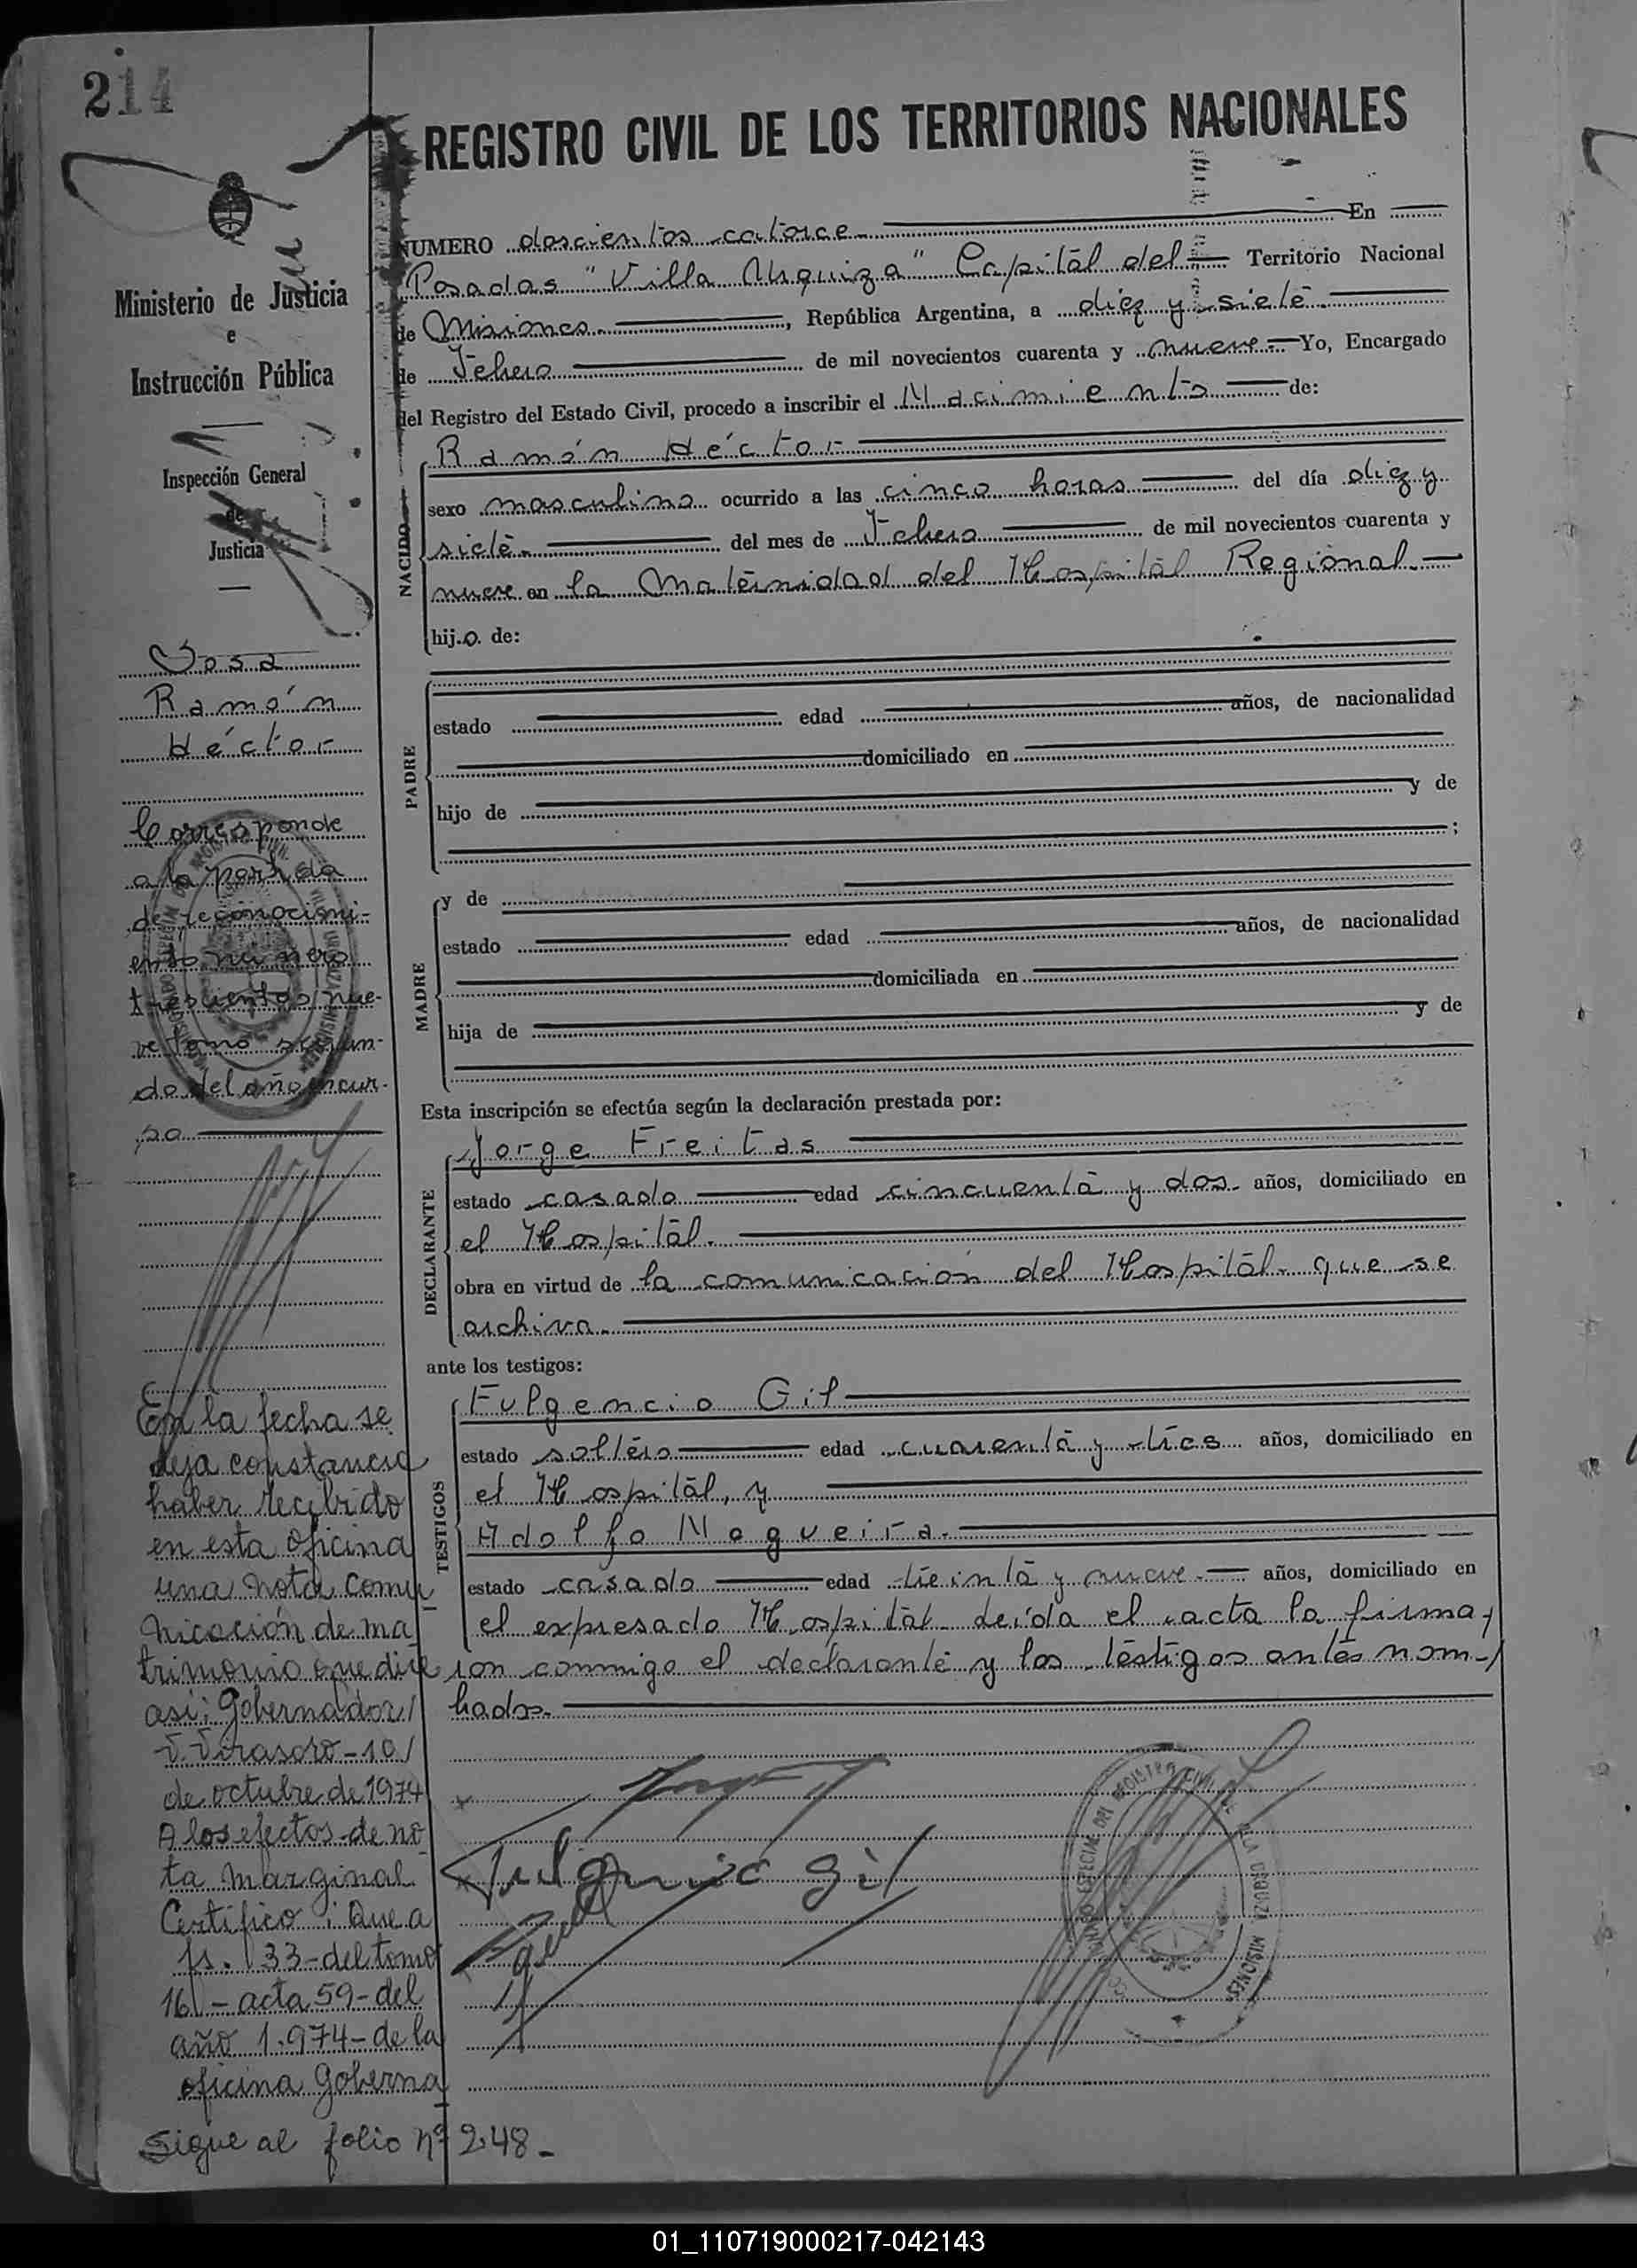 214
REGISTRO CIVIL DE LOS TERRITORIOS NACIONALES
Ministerio de Justicia
e
Instrucción Pública
Inspección General
de
Justicia
Sosa
Ramón
Héctor
Corresponde
a la partida
de reconocimi-
ento número
trescientos nue-
ve tomo segun-
do del año en cur-
so
En la fecha se
deja constancia
haber recibido
en esta oficina
una nota comu
nicación de ma
trimonio que dice
así: Gobernador
V. Virasoro - 10
de octubre de 1974
A los efectos de no
ta marginal
Certifico: Que a
fs. 133 - del tomo
16 - acta 59 - del
año 1.974 - de la
oficina Goberna
Sigue al folio nº 248.-
NUMERO doscientos catorce En
Posadas "Villa Urquiza" Capital del Territorio Nacional
de Misiones, República Argentina, a diez y siete
de Febrero de mil novecientos cuarenta y nueve Yo, Encargado
del Registro del Estado Civil, procedo a inscribir el Nacimiento de:
NACIDO
Ramón Héctor
sexo masculino ocurrido a las cinco horas del día diez y
siete del mes de Febrero de mil novecientos cuarenta y
nueve en la Maternidad del Hospital Regional.
hijo de:
PADRE
estado edad años, de nacionalidad
domiciliado en
hijo de y de
;
MADRE
y de
estado edad años, de nacionalidad
domiciliada en
hija de y de
Esta inscripción se efectúa según la declaración prestada por:
DECLARANTE
Jorge Freitas
estado casado edad cincuenta y dos años, domiciliado en
el Hospital.
obra en virtud de la comunicación del Hospital que se
archiva.
ante los testigos:
TESTIGOS
Fulgencio Gil
estado soltero edad cuarenta y tres años, domiciliado en
el Hospital, y
Adolfo Nogueira.
estado casado edad treinta y nueve años, domiciliado en
el expresado Hospital leída el acta la firma
ron conmigo el declarante y los testigos antes nom-
brados.
Fulgencio Gil
REGISTRO CIVIL
VILLA URQUIZA MISIONES
01_110719000217-042143